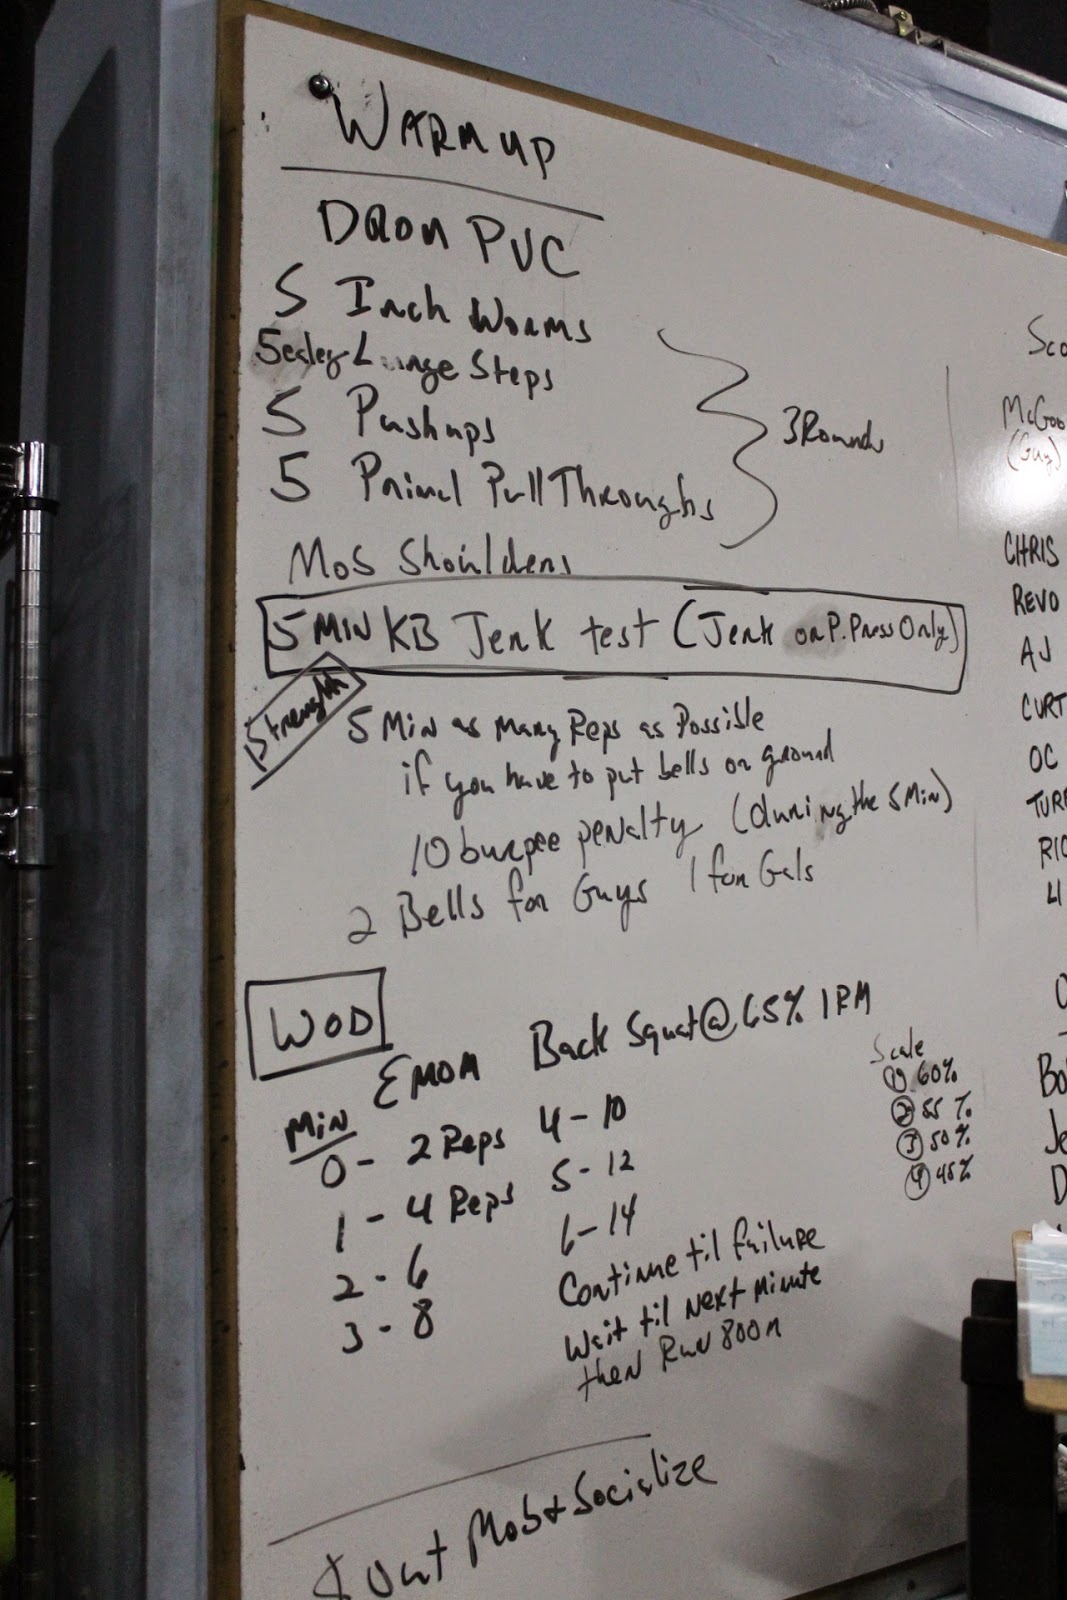 WARM UP
DROM PVC
5 Inch Worms
5 ea leg Lunge Steps
5 Pushups
5 Primal Pull Throughs
3 Rounds
Mos Shoulders
5 MIN KB Jerk test (Jerk or P. Press Only)
Strength
5 Min as many Reps as Possible
if you have to put bells on ground
10 burpee penalty (during the 5 Min)
2 Bells for Guys 1 for Gals
WOD
EMOM Back Squat @ 65% 1RM
Min
0 - 2 Reps
1 - 4 Reps
2 - 6
3 - 8
4 - 10
5 - 12
6 - 14
Continue til failure
Wait til next minute
then Run 800m
Scale
① 60%
② 55%
③ 50%
④ 45%
Out Mob + Socialize
Sco
McGoo
(Guy)
CHRIS
REVO
AJ
CURT
OC
TURE
RIC
LI
Bo
Je
D